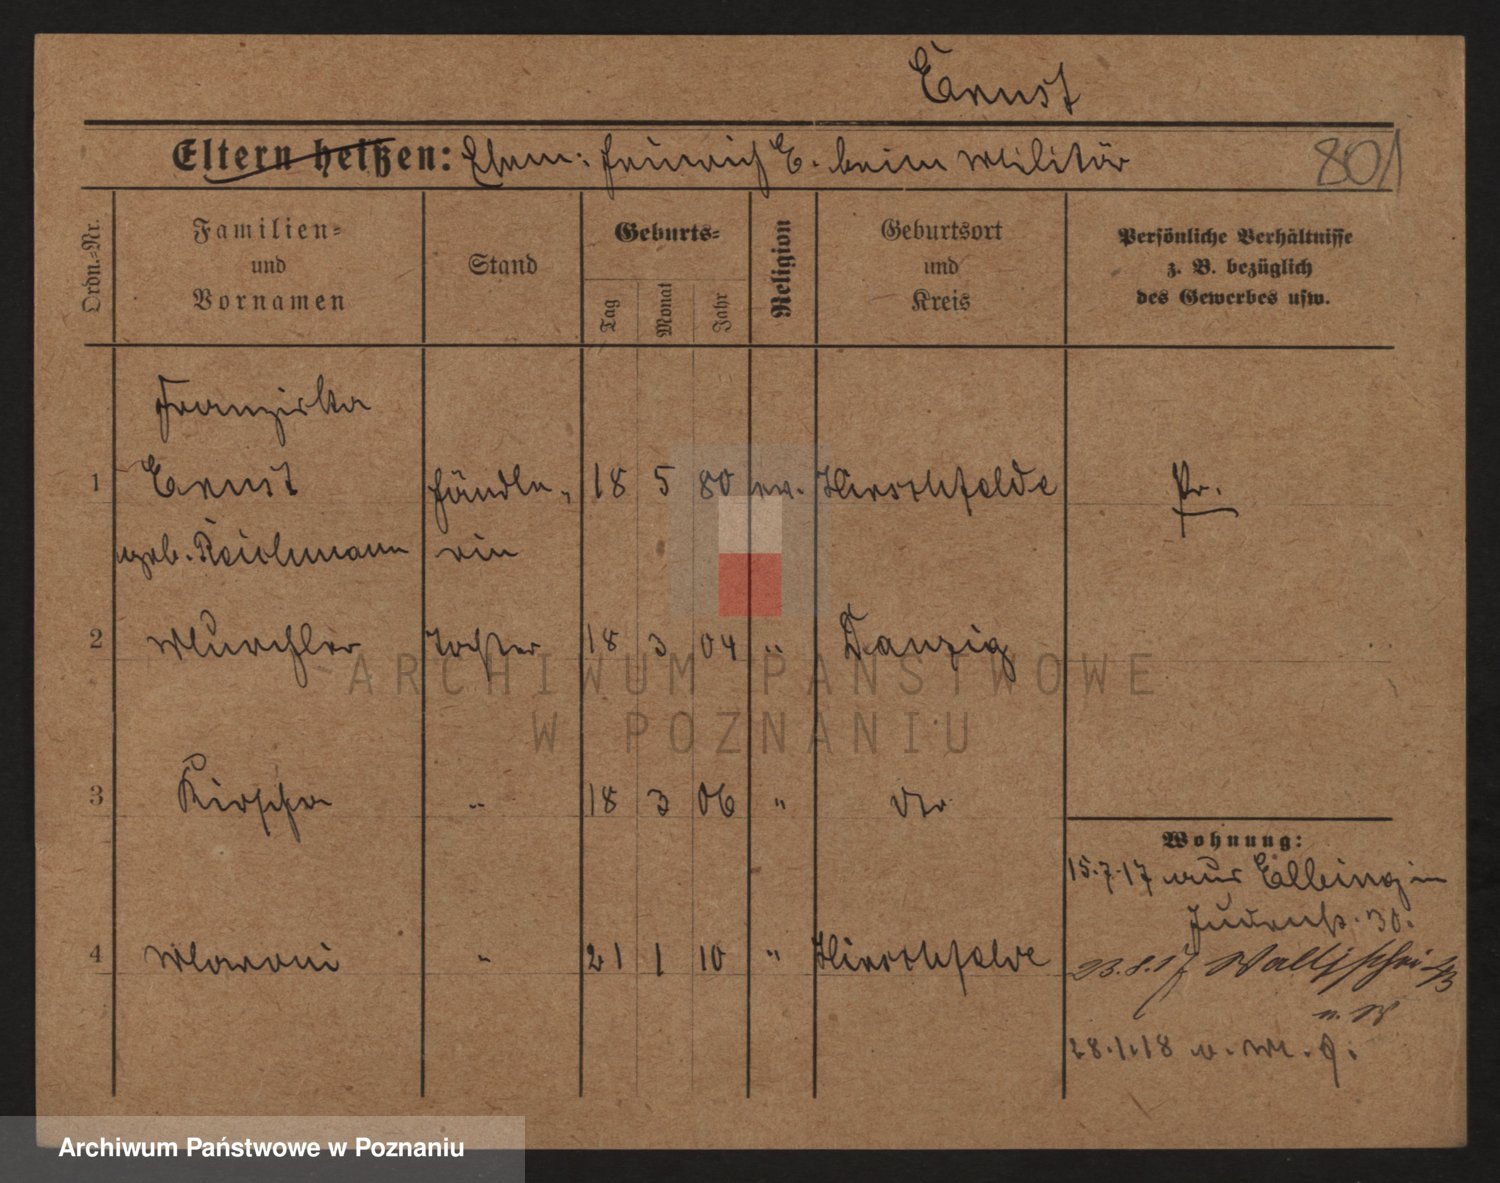 Ernst
Eltern heißen: Ehem: Heinrich E. beim Militär
801
Ordn.-Nr.
Familien-
und
Vornamen
Stand
Geburts-
Tag
Monat
Jahr
Religion
Geburtsort
und
Kreis
Persönliche Verhältnisse
z. B. bezüglich
des Gewerbes usw.
Franziska
1 Ernst Händle- 18 5 80 ev. Hirschfelde Pr.
geb. Reichmann rin
2 Tochter 18 3 04 " Danzig
3 " 18 3 06 "
Wohnung:
15.7.17 aus Elbing in
Judenstr. 30.
4 " 21 1 10 " Hirschfelde
23.8.17 Wallischei
28.1.18
ARCHIWUM PAŃSTWOWE
W POZNANIU
Archiwum Państwowe w Poznaniu